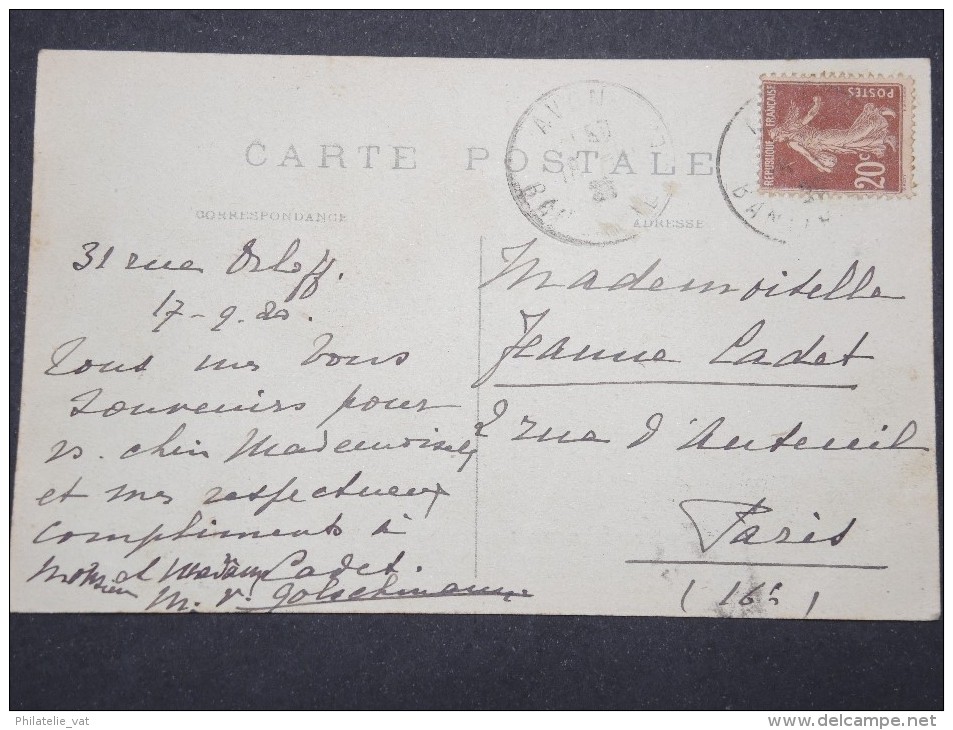 CARTE POSTALE
CORRESPONDANCE
ADRESSE
AVON
POSTES
REPUBLIQUE FRANÇAISE
20c
31 rue Orloff.
17-9-20.
Tous mes bons
souvenirs pour
v. chère Mademoiselle
et mes respectueux
compliments à
Monsieur et Madame Cadet.
M. V. Golschmann
Mademoiselle
Jeanne Cadet
2 rue d'Auteuil
Paris
(16è)
Philatelie_vat
www.delcampe.net